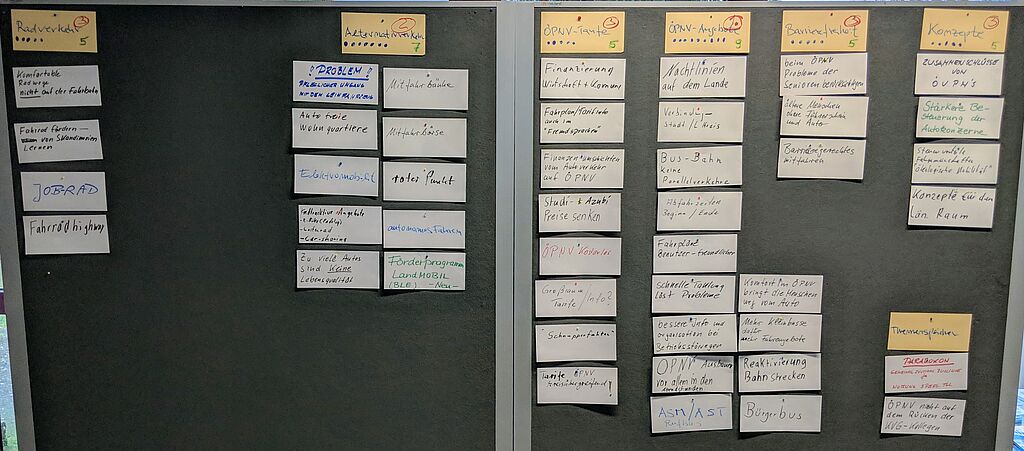 Radverkehr
3
5
Komfortable
Radwege
nicht auf der Fahrbahn
Fahrrad fördern -
von Skandinavien
Lernen
JOB-RAD
Fahrradhighway
Alternativverkehr
2
7
!! PROBLEM !!
Auto freie
Wohnquartiere
Elektromobilität
- Car-sharing
Zu viele Autos
sind keine
Lebensqualität
Mitfahrbänke
Mitfahrbörse
roter Punkt
autonomes Fahren
Förderprogramm
LandMOBIL
(BLE) -Neu-
ÖPNV-Tarife
3
15
Finanzierung
Wirtschaft + Komun
Fahrplan/Tarifinfo
auch in
"Fremdsprachen"
Finanzen umschichten
vom Autoverkehr
auf ÖPNV
Studi- + Azubi
Preise senken
ÖPNV Kostenlos
Großraum
Tarife/Info?
"Schnupperfahrten"
Tarife ÖPNV
kreisübergreifend!
ÖPNV-Angebote
1
9
Nachtlinien
auf dem Lande
Verbindung
Stadt/L Kreis
Bus-Bahn
keine
Parallelverkehre
Abfahrzeiten
Beginn/Ende
Fahrpläne
Benutzer-freundlicher
Schnelle Taktung
löst Probleme
bessere Info und
organisation bei
Betriebsstörungen
ÖPNV Ausbauen
vor allem in den
ASM/AST
Rufbus
Komfort im ÖPNV
bringt die Menschen
weg vom Auto
Mehr Kleinbusse
dafür
mehr Fahrangebote
Reaktivierung
Bahnstrecken
Bürgerbus
Barrierefreiheit
3
5
beim ÖPNV
Probleme der
Senioren berücksichtigen
ältere Menschen
ohne Führerschein
und Auto
Barrieregerechtes
mitfahren
Konzepte
3
5
ZUSAMMENSCHLÜSSE
VON
ÖVPN's
Stärkere Be-
steuerung der
Autokonzerne
"ökologische Mobilität"
Konzepte für den
Län. Raum
Themenspeicher
ÖPNV nicht auf
dem Rücken der
KVG-Kollegen